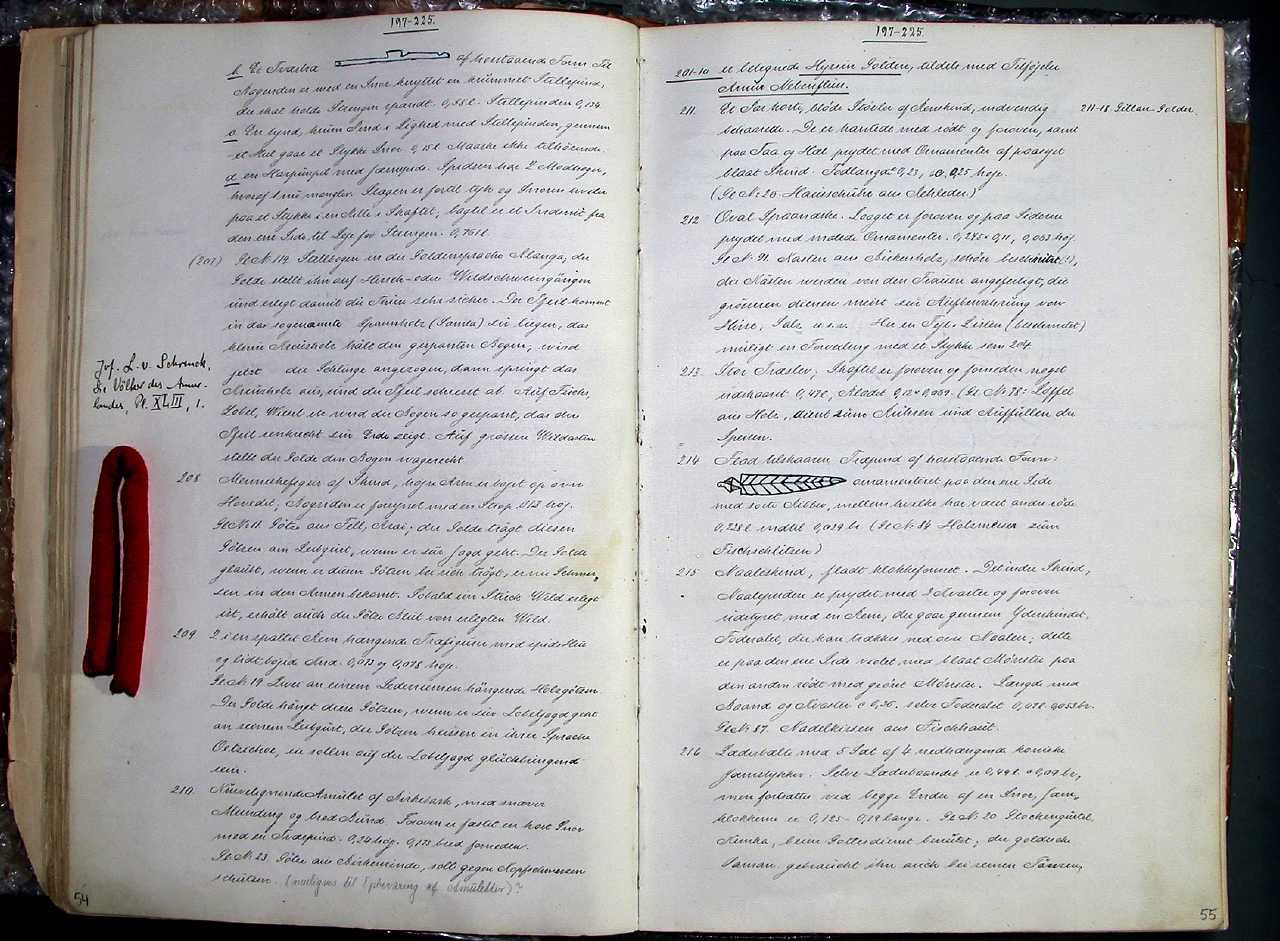 197-225.
b. Et Tvætræ af hosstaaende Form Til
Bøgenden er med en Snor knyttet en krummet Stillepind,
der skal holde Strengen spændt. 0,58 l. Stillepinden 0,134
c. En tynd, krum Pind i Lighed med Stillepinden, gennem
et Hul gaar et Stykke Snor 0,15 l Maaske ikke tilhørende.
d. en Harpunpil med Jærnspids. Spidsen har 2 Modhager,
hvoraf 1 nu mangler. Stagen er fortil tyk og Snoren
paa et Stykke i en Rille i Skaftet, bagtil er et Indsnit fra
den ene Side til Leje for Strengen. 0,761 l.
(207) Gl N. 114 Stellbogen in der Goldensprache Alanga, der
Golde stellt ihn auf Hirsch- oder Wildschweingängen
und erlegt damit die Tiere sehr sicher. Der Pfeil kommt
in das sogenannte Spannholz (Sanda) zu liegen, das
kleine Kreuzholz hält den gespannten Bogen, wird
jetzt die Schlinge angezogen, dann springt das
Kreuzholz aus, und der Pfeil schiesst ab. Auf Füchse,
Zobel, Wiesel etc wird der Bogen so gespannt, das der
Pfeil senkrecht zur Erde zeigt. Auf grössere Wildarten
stellt der Golde den Bogen wagerecht.
Jvf. L. v. Schrenck,
Die Völker des Amur-
landes, Pl. XLIII, 1.
208 Menneskefigur af Skind, højre Arm er bøjet op over
Hovedet; Bagenden er forsynet med en Strop. 0,123 høj.
Gl N. 11. Götze aus Fell, Arai; der Golde trägt diesen
Götzen am Leibgurt, wenn er zur Jagd geht. Der Golde
glaubt, wenn er diesen Götzen bei sich trägt, er nie Schmer-
zen in den Armen bekomt. Sobald ein Stück Wild erlegt
ist, erhält auch der Götze Blut vom erlegten Wild.
209 2 i en spaltet Rem hængende Træfigurer med spids Hue
og lidt bøjede Knæ. 0,073 og 0,078 høj.
Gl N. 19 Zwei an einem Lederriemen hängende Holzgötzen.
Der Golde hängt diese Götzen, wenn er zur Zobeljagd geht
an seinem Leibgurt, die Götzen heissen in ihrer Sprache
Oetzechoe, sie sollen auf der Zobeljagd glückbringend
sein.
210. Amulet af Birkebark, med snæver
Munding og bred Bund Foroven er fæstet en kort Snor
med en Træpind. 0,20 høj. 0,173 bred forneden.
Gl N. 23 Götze aus Birkenrinde, soll gegen Kopfschmerzen
schützen. (muligvis til Opbevaring af Amuletter)?
54
197-225.
201-10 er betegnede Hyrein Golden, tildels med Tilføjelse
Amur Nebenfluss.
211. Et Par korte, bløde Støvler af Rensskind, indvendig 211-18. Gilhan-Golder.
behaarede. De er kantede med rødt og foroven, samt
paa Taa og Hæl prydet med Ornamenter af paasyet
blaat Skind. Fodlængde 0,23, 0,25 høje.
(Gl N: 20. Hausschuhe aus Rehleder)
212 Oval Spaanæske. Laaget er foroven og paa Siderne
prydet med malede Ornamenter. 0,245 × 0,11, 0,063 høj.
Gl N. 91. Kasten aus Birkenholz, schön beschnitzt (!),
die Kästen werden von den Frauen angefertigt, die
grösseren dienen meist zur Aufbewahrung von
Hirse, Salz u.s.w. Her en Fejl: Listen (beschnitzt)
muligt en Forveksling med et Stykke som 204
213. Stor Træslev; Skaftet er foroven og forneden noget
udskaaret 0,472, Bladet 0,12 × 0,069. (Gl N. 78: Löffel
aus Holz, dient zum Rühren und Auffüllen der
Speisen.
214 Flad tilskaaren Træpind af hosstaaende Form:
ornamenteret paa den ene Side
med sorte Striber, mellem hvilke har været andre røde
0,228 l. indtil 0,029 br (Gl N. 84 Holzmesser zum
Fischschlitzen)
215 Naaleskind, fladt klokkeformet. Det indre Skind,
Naalepuden er prydet med 2 Kvaster og foroven
udstyret med en Rem, der gaar gennem Yderskindet,
Foderalet, der kan trækkes ned over Naalen; dette
er paa den ene Side violet med blaat Mønster paa
den anden rødt med grönt Mønster. Længde med
Baand og Kvaster c 0,30. selve Foderalet 0,078. 0,053 br.
Gl N. 87. Nadelkissen aus Fischhaut.
216 Læderbælte med 5 Sæt af 4 nedhængende koniske
Jærnstykker. Selve Læderbaandet er 0,49 l. × 0,09 br,
men fortsættes ved begge Ender af en Snor, Jærn-
klokkerne er 0,185 - 0,19 lange. Gl N. 20 Glockengürtel
Jamka, beim Gottesdienst benützt; der goldische
Saman gebraucht ihn auch bei seinen Tänzen,
55